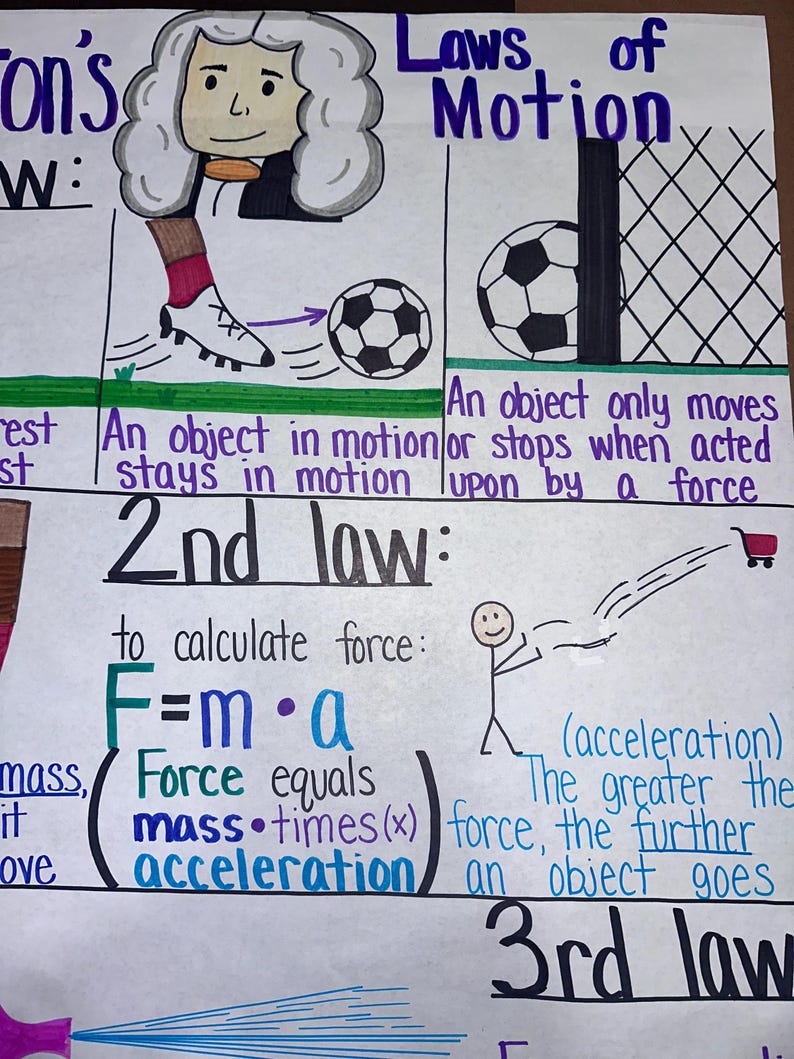 on's
Laws of
Motion
w:
est
st
An object in motion
stays in motion
An object only moves
or stops when acted
upon by a force
2nd law:
to calculate force:
F=m•a
(Force equals
mass•times(x)
acceleration)
mass,
it
ove
(acceleration)
The greater the
force, the further
an object goes
3rd law